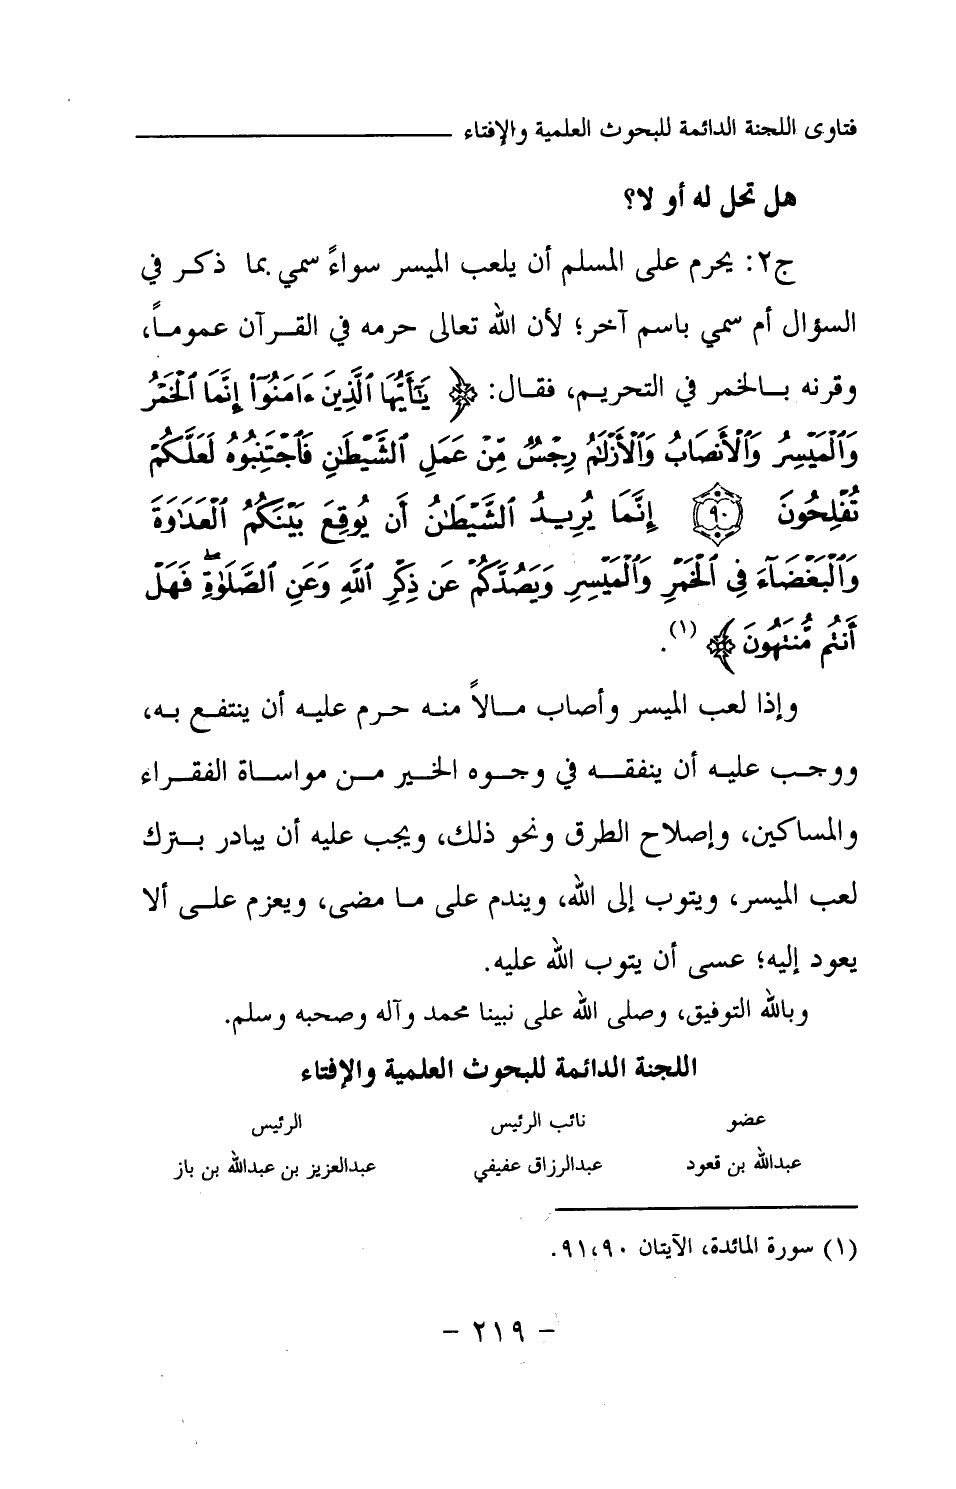 فتاوى اللجنة الدائمة للبحوث العلمية والإفتاء
هل تحل له أو لا؟
ج٢: يحرم على المسلم أن يلعب الميسر سواءً سمي بما ذكر في
السؤال أم سمي باسم آخر؛ لأن الله تعالى حرمه في القرآن عموماً،
وقرنه بالخمر في التحريم، فقال: ﴿ يَٰٓأَيُّهَا ٱلَّذِينَ ءَامَنُوٓا۟ إِنَّمَا ٱلْخَمْرُ
وَٱلْمَيْسِرُ وَٱلْأَنصَابُ وَٱلْأَزْلَٰمُ رِجْسٌ مِّنْ عَمَلِ ٱلشَّيْطَٰنِ فَٱجْتَنِبُوهُ لَعَلَّكُمْ
تُفْلِحُونَ ٩٠ إِنَّمَا يُرِيدُ ٱلشَّيْطَٰنُ أَن يُوقِعَ بَيْنَكُمُ ٱلْعَدَٰوَةَ
وَٱلْبَغْضَآءَ فِى ٱلْخَمْرِ وَٱلْمَيْسِرِ وَيَصُدَّكُمْ عَن ذِكْرِ ٱللَّهِ وَعَنِ ٱلصَّلَوٰةِ ۖ فَهَلْ
أَنتُم مُّنتَهُونَ ﴾ (١).
وإذا لعب الميسر وأصاب مالاً منه حرم عليه أن ينتفع به،
ووجب عليه أن ينفقه في وجوه الخير من مواساة الفقراء
والمساكين، وإصلاح الطرق ونحو ذلك، ويجب عليه أن يبادر بترك
لعب الميسر، ويتوب إلى الله، ويندم على ما مضى، ويعزم على ألا
يعود إليه؛ عسى أن يتوب الله عليه.
وبالله التوفيق، وصلى الله على نبينا محمد وآله وصحبه وسلم.
اللجنة الدائمة للبحوث العلمية والإفتاء
عضو نائب الرئيس الرئيس
عبدالله بن قعود عبدالرزاق عفيفي عبدالعزيز بن عبدالله بن باز
(١) سورة المائدة، الآيتان ٩٠،٩١.
- ٢١٩ -